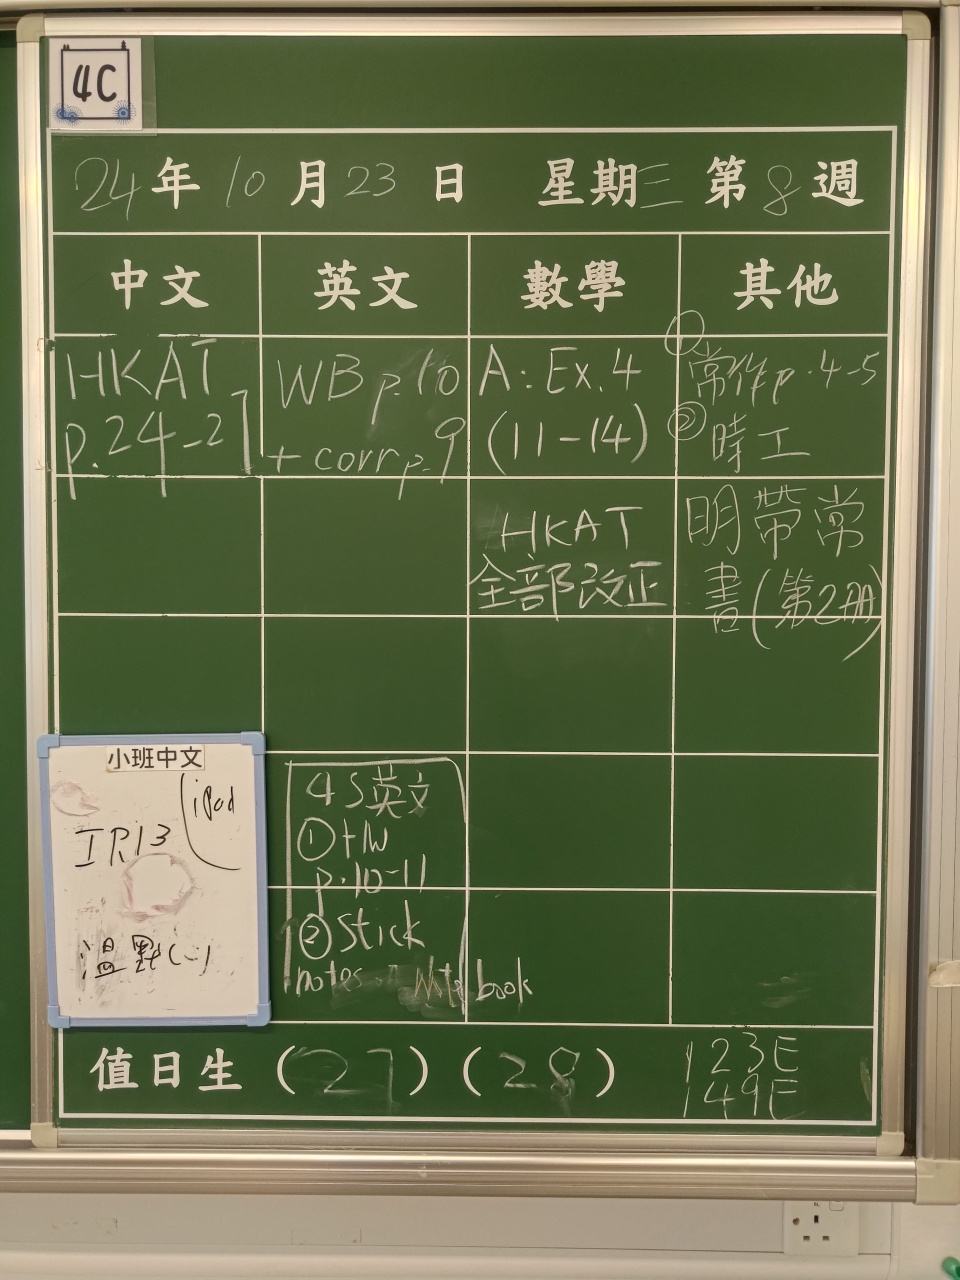 4C
24年 10月 23日 星期三 第8週
中文 英文 數學 其他
HKAT
p.24-27
WB p.10
+ corr p.9
A: Ex. 4
(11-14)
① 常作p.4-5
② 時工
HKAT
全部改正
明帶常
書(第2冊)
小班中文
iPad
IR13
溫默(二)
4S英文
① HW
p.10-11
② Stick
notes notebook
值日生 (27) (28)
123E
149E